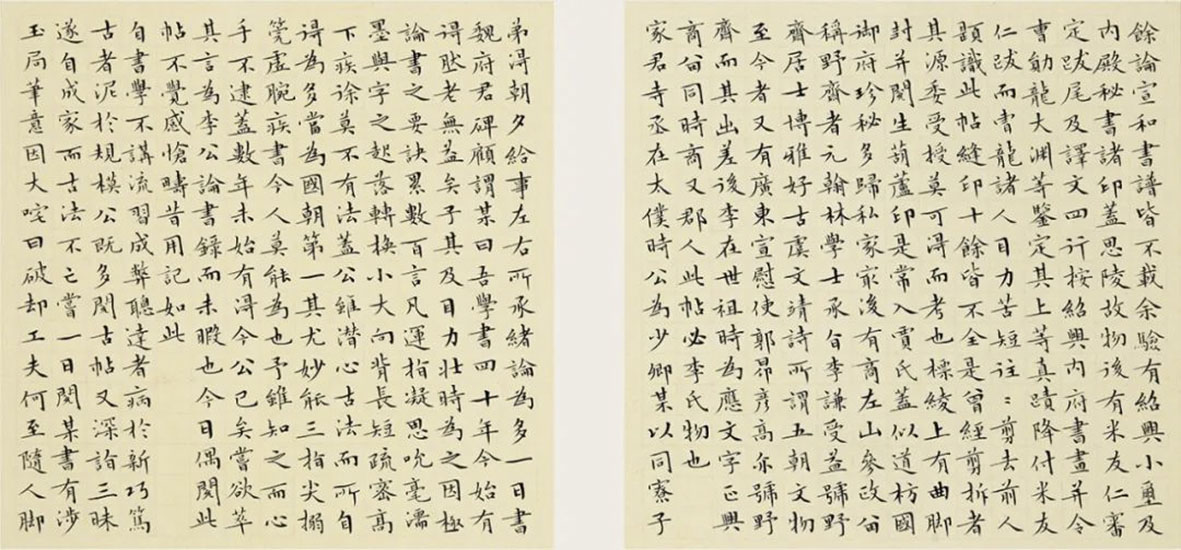 餘論宣和書譜皆不載余驗有紹興小璽及
内殿秘書諸印蓋思陵故物後有米友仁審
定跋尾及譯文四行按紹興内府書畫并令
曹勛龍大渊等鑒定其上等真蹟降付米友
仁跋而曹龍諸人目力苦短往〻剪去前人
題識此帖縫印十餘皆不全是曾經剪拆者
其源委受授莫可得而考也標綾上有曲脚
封并閱生葫蘆印是常入賈氏蓋似道枋國
御府珍秘多歸私家最後有商左山參政公
稱野齋者元翰林學士承旨李謙受益號野
齋居士博雅好古虞文靖詩所謂五朝文物
至今者又有廣東宣慰使郭昂彥高亦號野
齋而其出差後李在世祖時為應文字正與
商公同時商又郡人此帖必李氏物也
家君寺丞在太僕時公為少卿某以同寮子
弟淂朝夕給事左右所承緒論為多一日書
魏府君碑顧謂某曰吾學書四十年今始有
得肰老無益矣子其及目力壯時為之因極
論書之要訣累數百言凡運指凝思吮毫濡
墨與字之起落轉換小大向背長短疏密高
下疾徐莫不有法蓋公雖潜心古法而所自
得為多當為國朝第一其尤妙能三指尖搦
筦虛腕疾書今人莫能為也予雖知之而心
手不逮蓋數年未始有得今公已矣嘗欲萃
其言為李公論書錄而未暇也今日偶閱此
帖不覺感愴疇昔用記如此
自書學不講流習成弊聰達者病於新巧篤
古者泥於規模公既多閱古帖又深詣三昧
遂自成家而古法不亡嘗一日閱某書有涉
玉局筆意因大咤曰破却工夫何至隨人脚